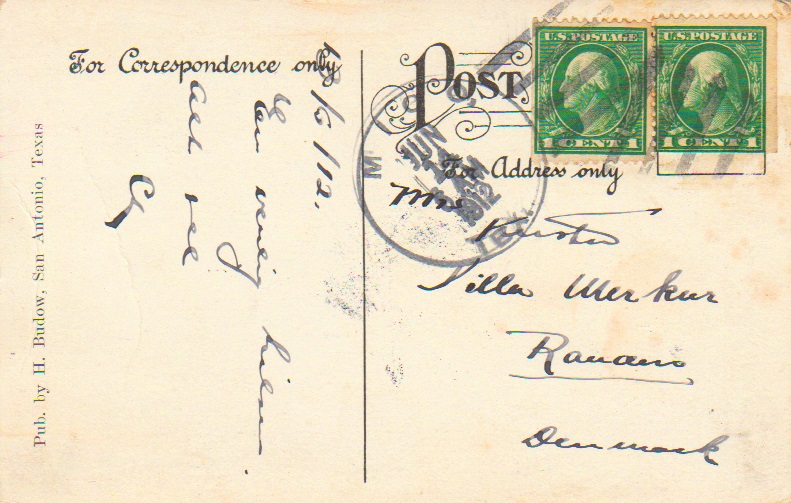 For Correspondence only
POST
For Address only
U.S. POSTAGE
1 CENT 1
U.S. POSTAGE
1 CENT 1
JUN
1912
TEX.
Mrs
Villa Merkur
Denmark
/6/12.
En venlig hilsen.
alt vel
Pub. by H. Budow, San Antonio, Texas